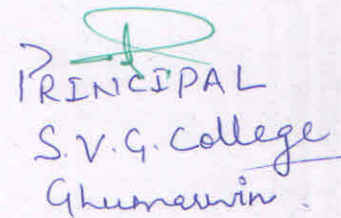 PRINCIPAL
S.V.G. College
Ghumarwin.